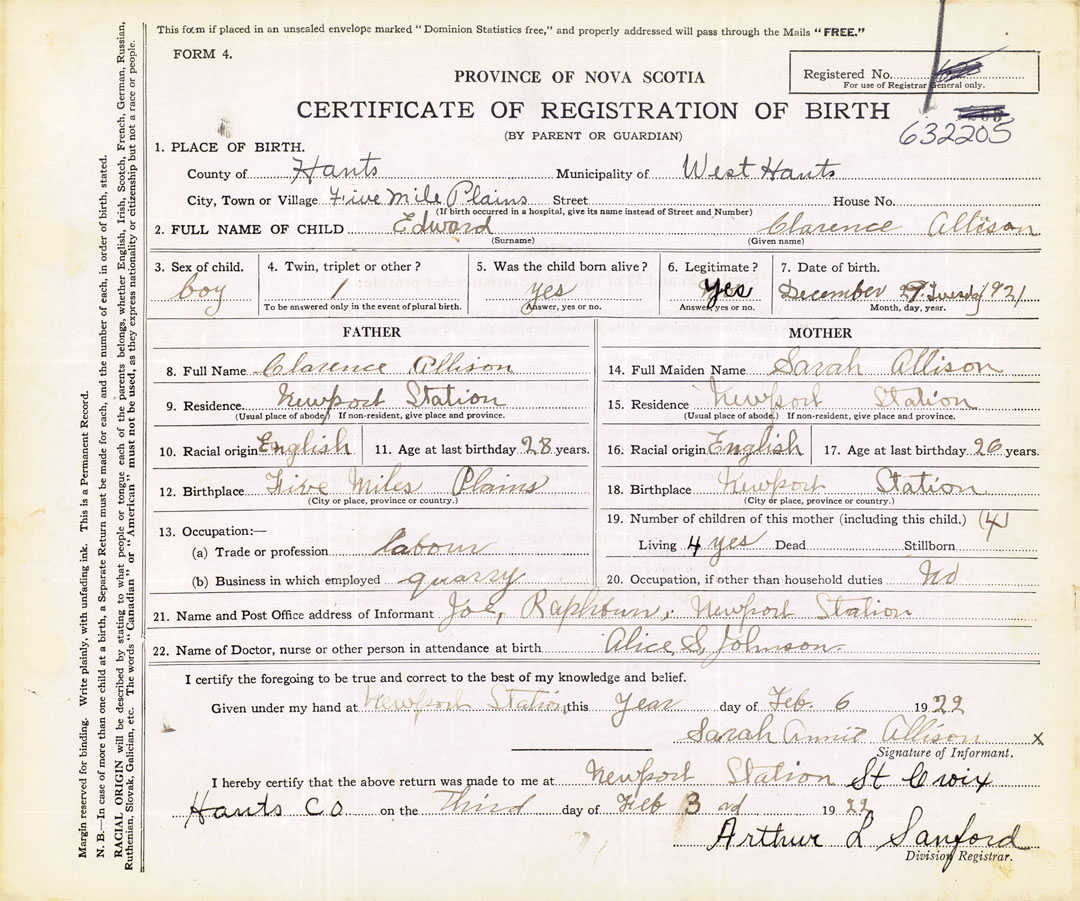 This form if placed in an unsealed envelope marked "Dominion Statistics free," and properly addressed will pass through the Mails "FREE."
FORM 4.
PROVINCE OF NOVA SCOTIA
Registered No.
For use of Registrar General only.
CERTIFICATE OF REGISTRATION OF BIRTH
(BY PARENT OR GUARDIAN)
632205
1. PLACE OF BIRTH.
County of Hants Municipality of West Hants
City, Town or Village Five Mile Plains Street House No.
(If birth occurred in a hospital, give its name instead of Street and Number)
2. FULL NAME OF CHILD Edward Clarence Allison
(Surname) (Given name)
3. Sex of child. 4. Twin, triplet or other? 5. Was the child born alive? 6. Legitimate? 7. Date of birth.
boy 1 yes yes December 27 Tuesday 1921
To be answered only in the event of plural birth. Answer, yes or no. Answer, yes or no. Month, day, year.
FATHER MOTHER
8. Full Name Clarence Allison 14. Full Maiden Name Sarah Allison
9. Residence Newport Station 15. Residence Newport Station
(Usual place of abode) If non-resident, give place and province. (Usual place of abode.) If non-resident, give place and province.
10. Racial origin English 11. Age at last birthday 28 years. 16. Racial origin English 17. Age at last birthday 26 years.
12. Birthplace Five Miles Plains 18. Birthplace Newport Station
(City or place, province or country.) (City or place, province or country.)
13. Occupation:— 19. Number of children of this mother (including this child.) (4)
(a) Trade or profession labour Living 4 yes Dead Stillborn
(b) Business in which employed quarry 20. Occupation, if other than household duties No
21. Name and Post Office address of Informant Joe, Raphburn, Newport Station
22. Name of Doctor, nurse or other person in attendance at birth Alice S. Johnson
I certify the foregoing to be true and correct to the best of my knowledge and belief.
Given under my hand at Newport Station, this Year day of Feb. 6 1922
Sarah Annie Allison X
Signature of Informant.
I hereby certify that the above return was made to me at Newport Station St Croix
Hants Co on the third day of Feb 3 rd 1922
Arthur L Sanford
Division Registrar.
Margin reserved for binding. Write plainly, with unfading ink. This is a Permanent Record.
N. B.—In case of more than one child at a birth, a Separate Return must be made for each, and the number of each, in order of birth, stated.
RACIAL ORIGIN will be described by stating to what people or tongue each of the parents belongs, whether English, Irish, Scotch, French, German, Russian,
Ruthenian, Slovak, Galician, etc. The words "Canadian" or "American" must not be used, as they express nationality or citizenship but not a race or people.